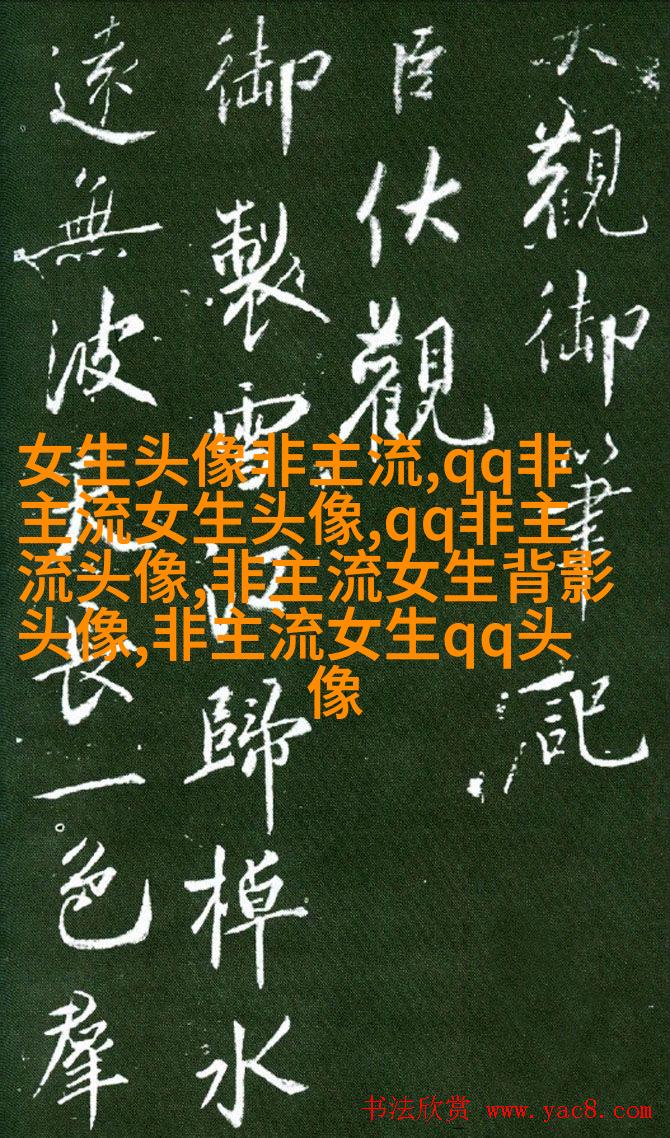 大觀御筆記
臣伏觀
御製雪江歸棹水
遠無波天長一色羣
女生头像非主流,qq非
主流女生头像,qq非主
流头像,非主流女生背影
头像,非主流女生qq头
像
书法欣赏 www.yac8.com